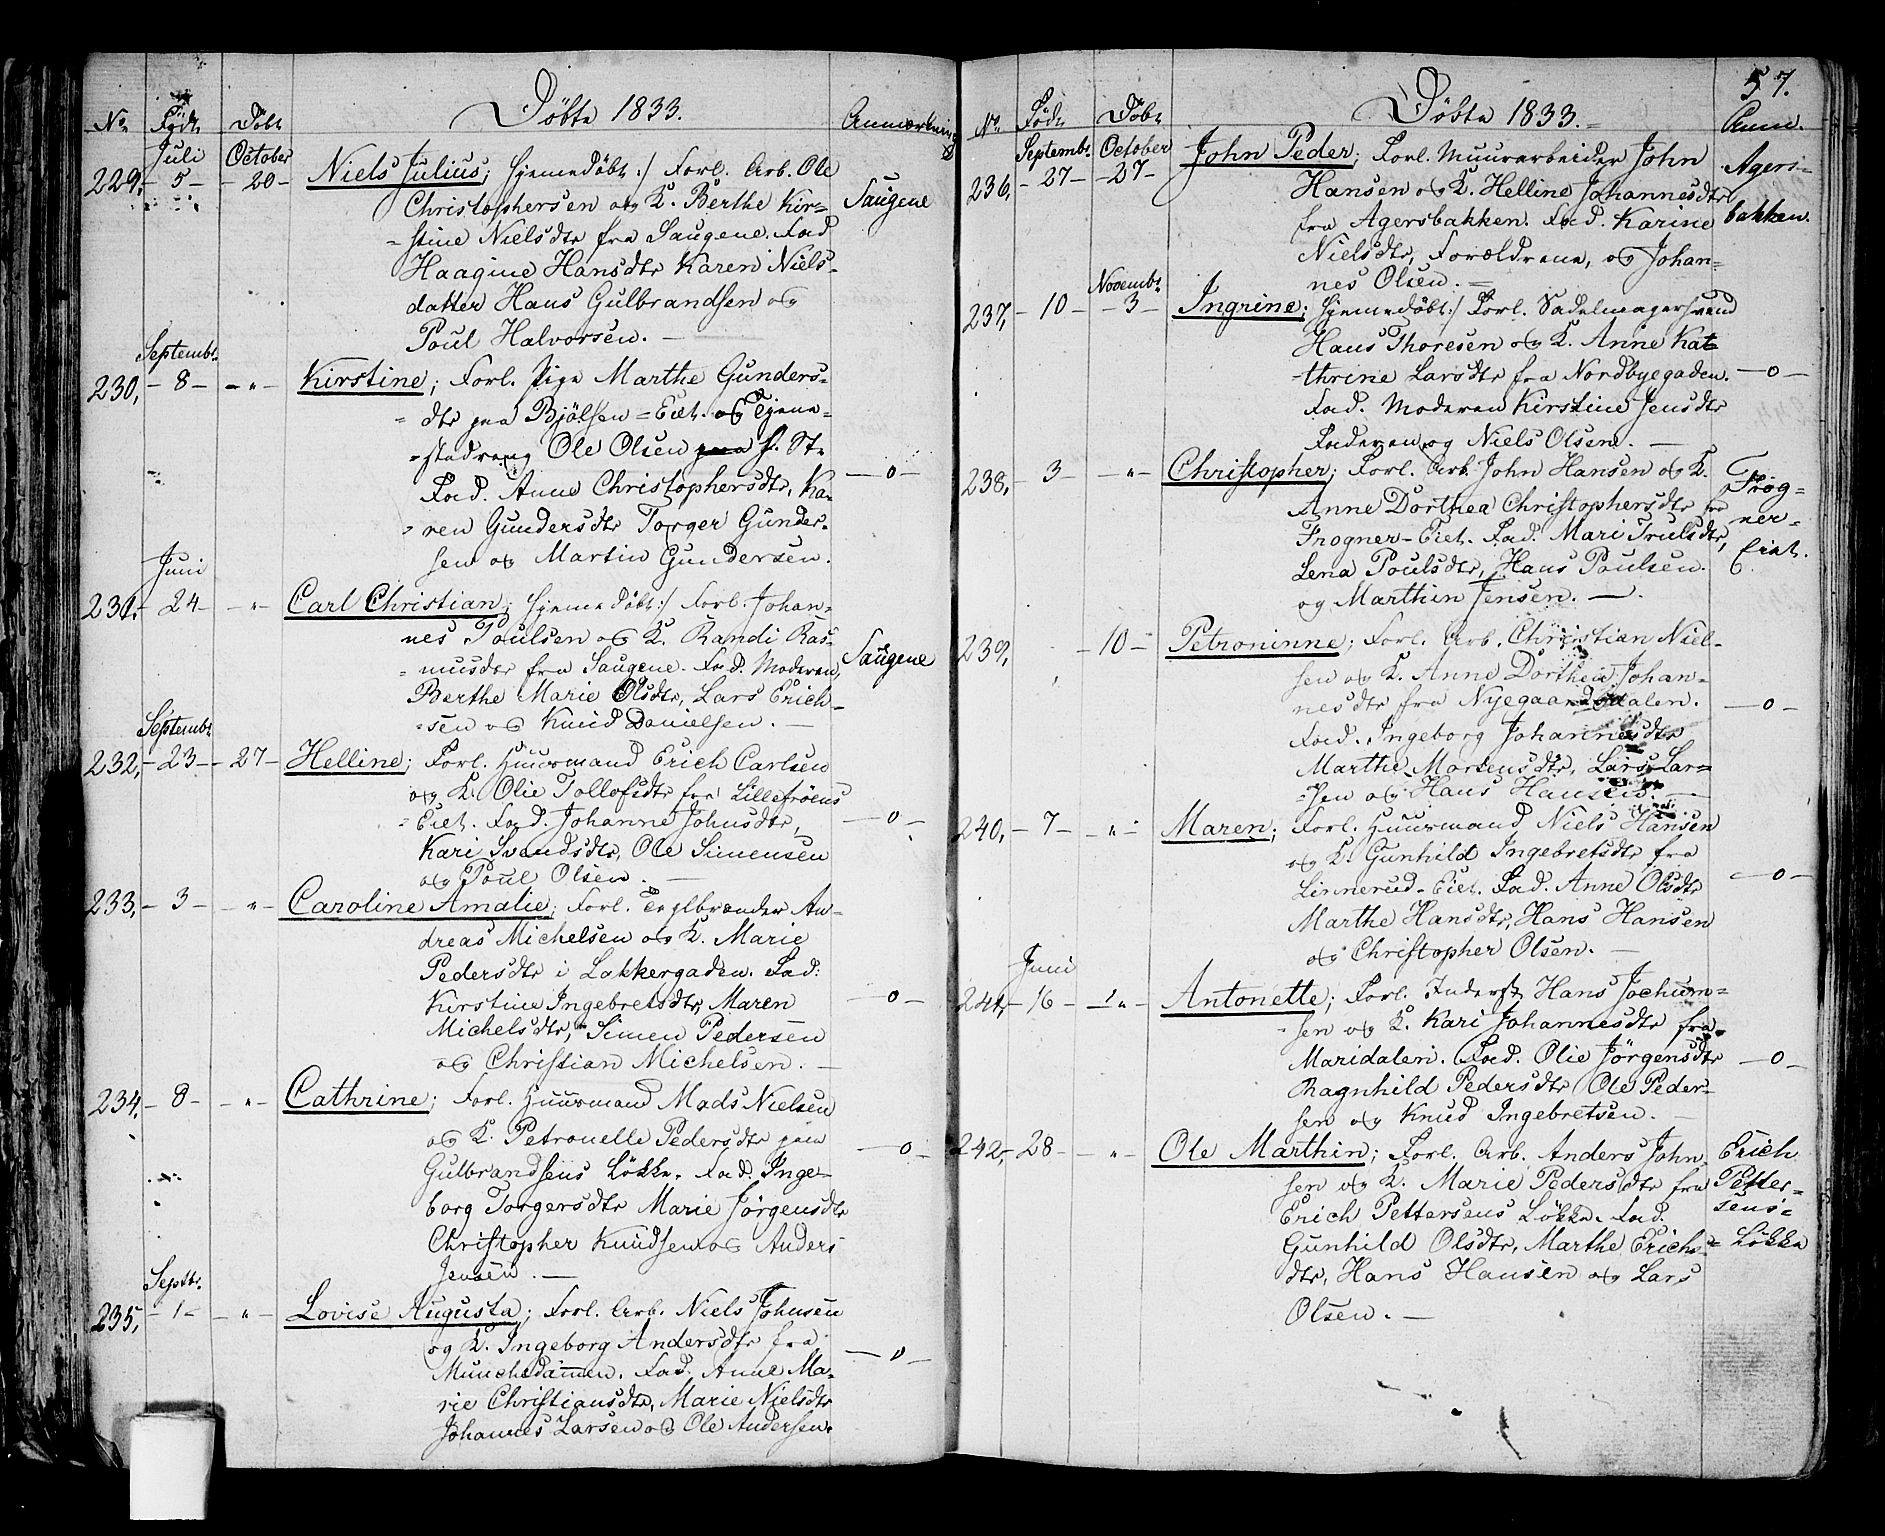 Døbte 1833.
No Født Døbt Anmærkning
Juli October
229, - 5 - - 20 - Niels Julius; hjemedøbt :/ Forl. Arb. Ole
Christophersen og K. Berthe Kir= Saugene
=stine Nielsdtr fra Saugene. Fad
Haagine Hansdtr Karen Niels-
datter Hans Gulbrandsen og
Poul Halvorsen. —
Septembr.
230, - 8 - - " - Kirstine; Forl. Pige Marthe Gunders=
=dtr paa Bjølsen=Eiet. og Tjene=
=stedreng Ole Olsen paa S. St.
Fad. Anne Christophersdtr, Ka= — 0 —
=ren Gundersdtr Torger Gunder=
sen og Martin Gundersen.
Juni
231. - 24 - - " - Carl Christian; hjemedøbt :/ Forl. Johan=
nes Poulsen og K. Randi Ras=
=musdtr fra Saugene. Fad. Moderen, Saugene
Berthe Marie Olsdtr, Lars Erich=
=sen og Knud Danielsen. —
Septembr.
232, - 23 - - 27 - Helline; Forl. Huusmand Erich Carlsen
og K. Olie Tollofsdtr fra Lillefrøens
=Eiet. Fad. Johanne Johnsdtr, — 0 —
Kari Svendsdtr, Ole Simensen
og Poul Olsen. —
233, - 3 - - " - Caroline Amalie; Forl. Teglbrænder An=
dreas Michelsen og K. Marie
Pedersdtr i Lakkergaden. Fad:
Kirstine Ingebretsdtr, Maren — 0 —
Michelsdtr, Simen Pedersen
og Christian Michelsen. —
234, - 8 - - " - Cathrine; Forl. Huusmand Mads Nielsen
og K. Petronelle Pedersdtr paa
Gulbrandsens Løkke. Fad. Inge= — 0 —
borg Torgersdtr Marie Jørgensdtr
Christopher Knudsen og Anders
Jensen. —
Septbr.
235, - 1 - - " - Lovise Augusta; Forl. Arb. Niels Johnsen
og K. Ingeborg Andersdtr fra
Munchedammen. Fad. Anne Ma= — 0 —
rie Christiansdtr, Marie Nielsdtr
Johannes Larsen og Ole Andersen.
57.
Døbte 1833.
No. Født Døbt Anm.
Septembr. October
236, - 27 - - 27 - John Peder; Forl. Muurarbeider John Agers=
Hansen og K. Helline Johannesdtr
fra Agersbakken. Fad. Karine bakken.
Nielsdtr, Forældrene, og Johan=
nes Olsen. —
Novembr.
237, - 10 - - 3 - Ingrine; hjemedøbt :/ Forl. Sadelmagersvend
Hans Thoresen og K. Anne Kat=
=thrine Larsdtr fra Nordbyegaden. — 0 —
Fad. Moderen Kirstine Jensdtr
Faderen og Niels Olsen. —
238, - 3 - - " - Christopher; Forl. Arb. John Hansen og K. Frog=
Anne Dorthea Christophersdtr fra ner=
Frogner-Eiet. Fad. Mari Trulsdtr, Eiet.
Lena Poulsdtr, Hans Poulsen.
og Marthin Jensen. —
239, - 10 - Petroninne; Forl. Arb. Christian Niel=
sen og K. Anne Dorthea Johan=
nesdtr fra Nyegaardsdalen. — 0 —
Fad. Ingeborg Johannesdtr
Marthe Mortensdtr, Lars Lar=
=sen og Hans Hansen. —
240, - 7 - - " - Maren; Forl. Huusmand Niels Hansen
og K. Gunhild Ingebretsdtr fra
Linnerud-Eiet. Fad. Anne Olsdtr — 0 —
Marthe Hansdtr, Hans Hansen
og Christopher Olsen. —
Juni
241, - 16 - - " - Antonette; Forl. Inderst Hans Jochum=
=sen og K. Kari Johannesdtr fra
Maridalen. Fad. Olie Jørgensdtr — 0 —
Ragnhild Pedersdtr Ole Peder=
sen og Knud Ingebretsen. —
242, - 28 - - " - Ole Marthin; Forl. Arb. Anders John= Erich
sen og K. Marie Pedersdtr fra Petter=
Erich Pettersens Løkke. Fad. sens=
Gunhild Olsdtr, Marthe Erichs= =Løkke
dtr, Hans Hansen og Lars
Olsen. —